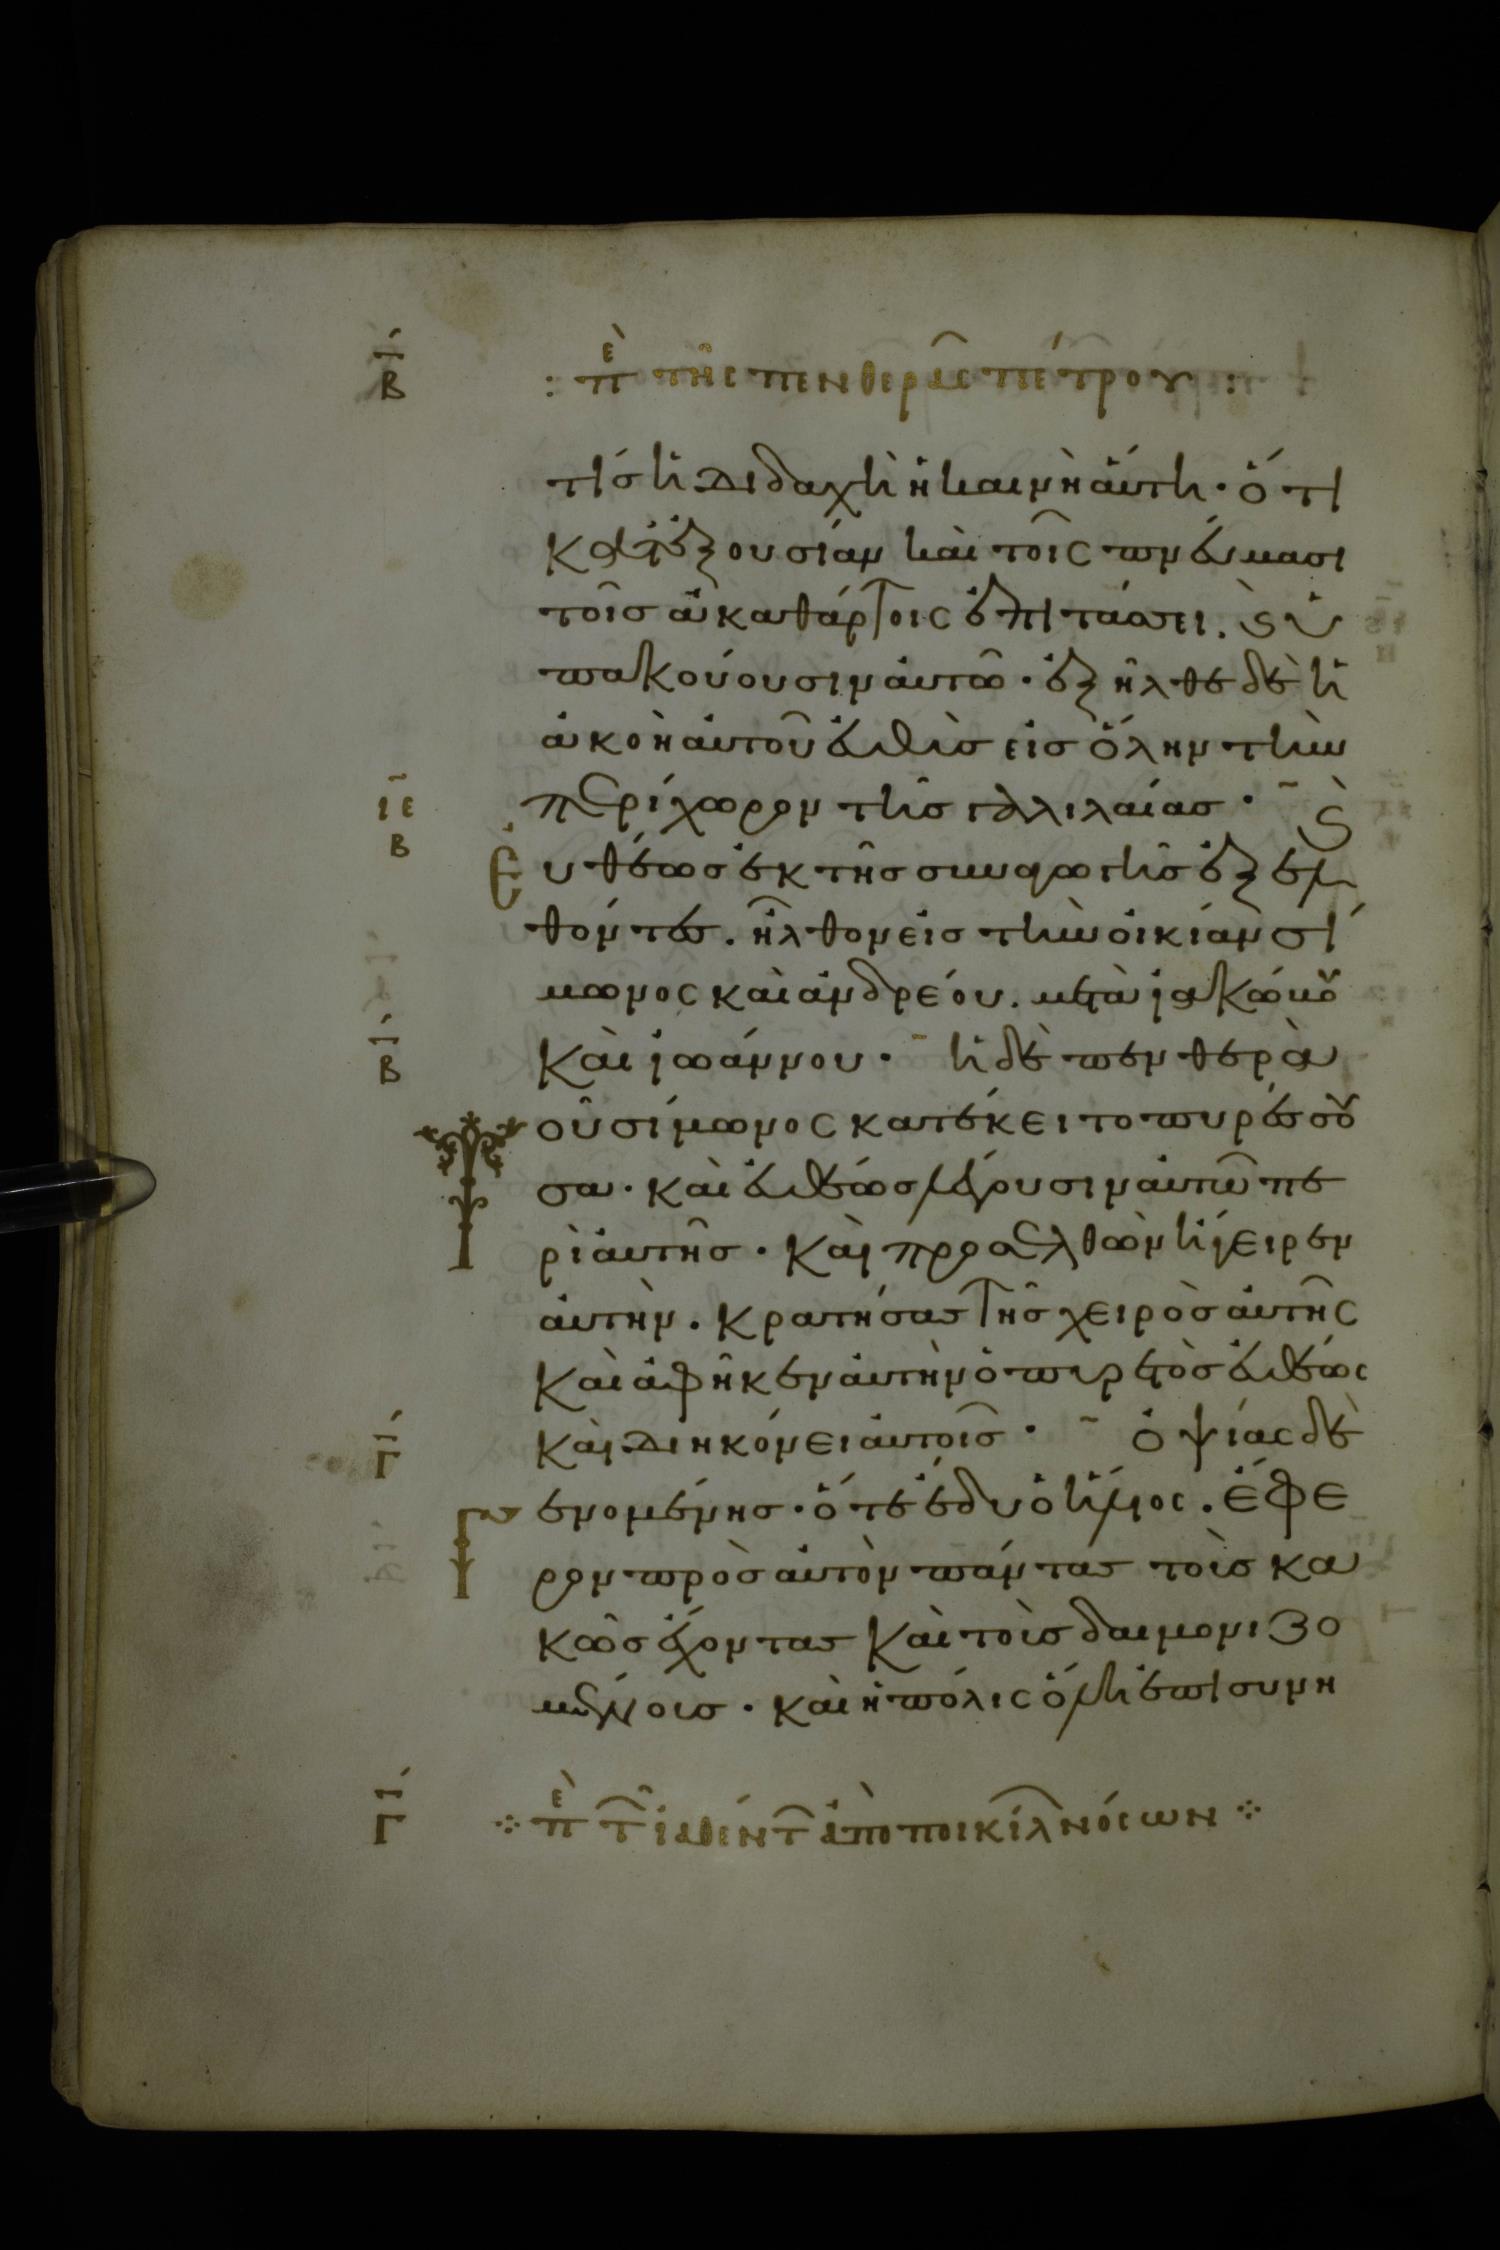 Β : πε τῆς πενθερᾶς πέτρου :
τίς ἡ διδαχὴ ἡ καινὴ ἀύτη· ὅτι
κατεξουσίαν καὶ τοῖς πνεύμασι
τοῖς ἀκαθάρτοις ἐπιτάσσει. ϗ ὑ
πακούουσιν ἀυτῶ· ἐξῆλθε δὲ ἡ
ἀκοὴ ἀυτοῦ ἐυθὺς εἰς ὅλην τὴν
περίχωρον τῆς γαλιλαίας· ϗ
ιε
Β
Ἐυθέως ἐκ τῆς συναγωγῆς ἐξελ
θόντες. ἦλθον εἰς τὴν οἰκίαν σί
μωνος καὶ ἀνδρέου. μετὰ ἰακώβου
Καὶ ἰωάννου· ἡ δὲ πενθερὰ
Β
τοῦ σίμωνος κατέκειτο πυρέσσου
σα· καὶ ἐυθέως λέγουσιν ἀυτῶ πε
ρὶ ἀυτῆς· Καὶ προσελθὼν ἤγειρεν
ἀυτὴν. κρατήσας τῆς χειρὸς ἀυτῆς
Καὶ ἀφῆκεν ἀυτὴν ὁ πυρετὸς ἐυθέως
Καὶ διηκόνει ἀυτοῖς· ὀψίας δὲ
Γ
γενομένης· ὅτε ἔδυ ὁ ἥλιος. ἔφε
ρον πρὸς ἀυτὸν πάντας τοὺς κα
κῶς ἔχοντας Καὶ τοὺς δαιμονιζο
μένους. καὶ ἡ πόλις ὅλη ἐπισυνη
Γ πε τ ἰαθέντ ἀπὸ ποικίλ νόσων